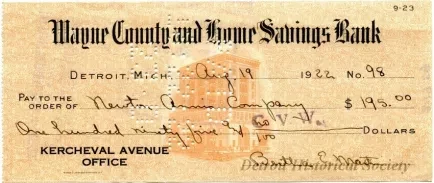 9-23
Wayne County and Home Savings Bank
DETROIT, MICH. Aug 19 1922 No. 98
PAY TO THE ORDER OF Newton Annis Company $195.00
One hundred ninety five & 00/100 DOLLARS
G V W
KERCHEVAL AVENUE OFFICE
Detroit Historical Society